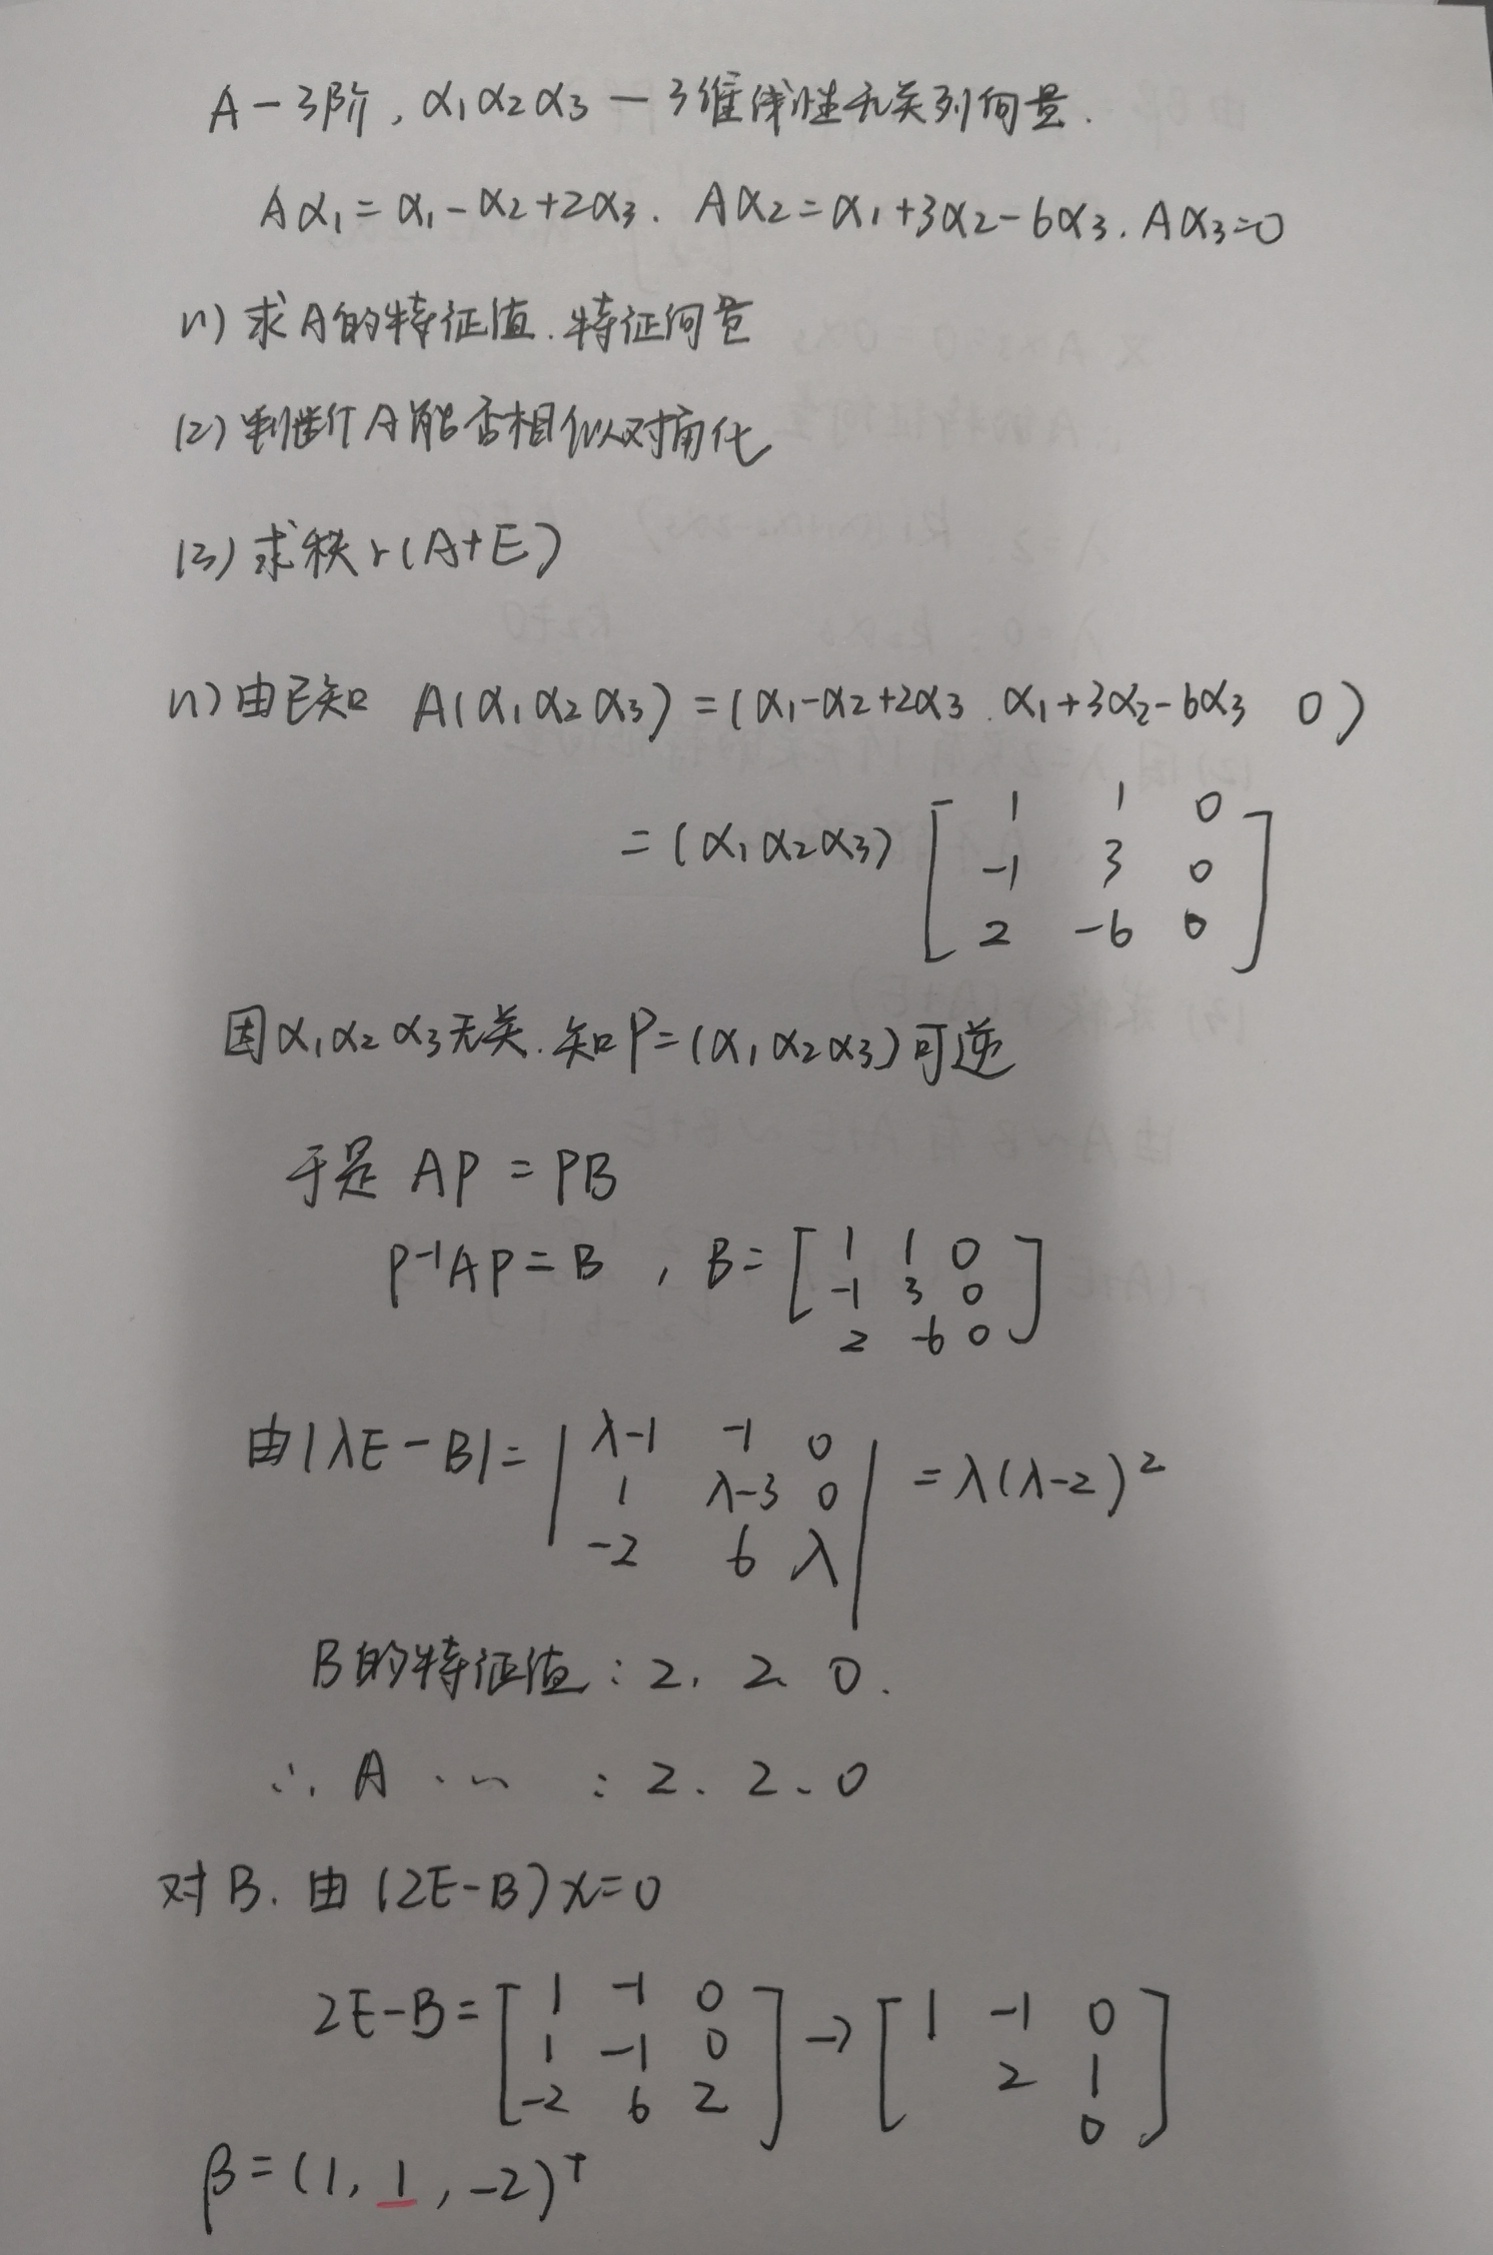 A－3阶，α₁α₂α₃－3维线性无关列向量．
Aα₁=α₁-α₂+2α₃．Aα₂=α₁+3α₂-6α₃．Aα₃=0
(1) 求A的特征值．特征向量
(2) 判断A能否相似对角化
(3) 求秩r(A+E)
(1) 由已知 A(α₁α₂α₃)=(α₁-α₂+2α₃ . α₁+3α₂-6α₃ 0)
=(α₁α₂α₃) [ 1 1 0
-1 3 0
2 -6 0 ]
因α₁α₂α₃无关．知P=(α₁α₂α₃)可逆
于是 AP=PB
P⁻¹AP=B ，B=[ 1 1 0
-1 3 0
2 -6 0 ]
由|λE-B|= | λ-1 -1 0
1 λ-3 0
-2 6 λ | =λ(λ-2)²
B的特征值：2．2、0．
∴ A … ：2、2、0
对B．由(2E-B)x=0
2E-B=[ 1 -1 0
1 -1 0
-2 6 2 ] → [ 1 -1 0
2 1
0 ]
β=(1，1，-2)ᵀ